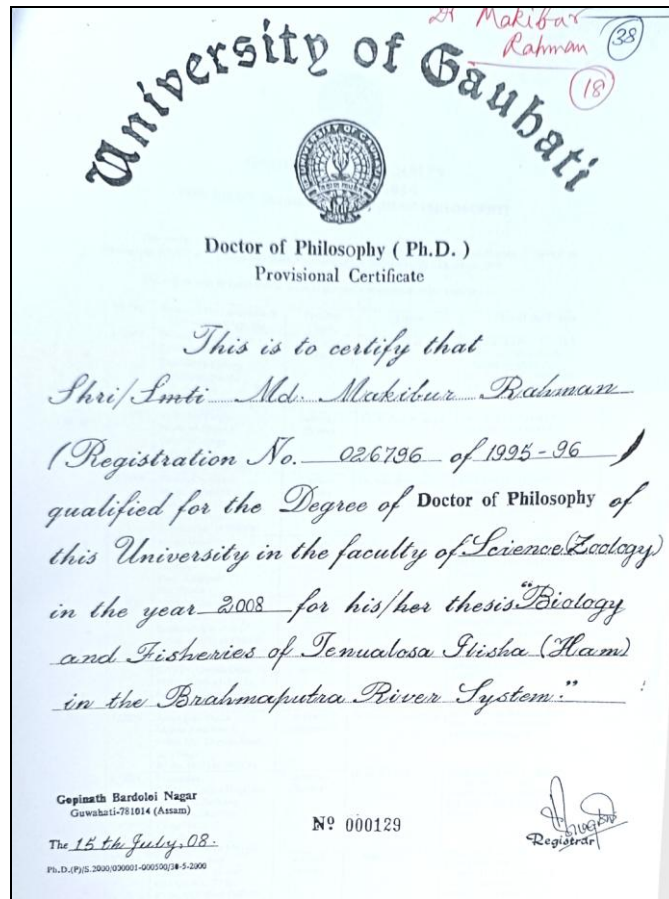 Dr Makibar
Rahman
38
18
University of Gauhati
Doctor of Philosophy ( Ph.D. )
Provisional Certificate
This is to certify that
Shri/Smti Md. Makibur Rahman
(Registration No. 026796 of 1995-96 )
qualified for the Degree of Doctor of Philosophy of
this University in the faculty of Science (Zoology)
in the year 2008 for his/her thesis "Biology
and Fisheries of Tenualosa Ilisha (Ham)
in the Brahmaputra River System."
Gopinath Bardoloi Nagar
Guwahati-781014 (Assam)
The 15th July, 08.
Nº 000129
Registrar
Ph.D.(P)/S.2000/000001-000500/30-5-2000